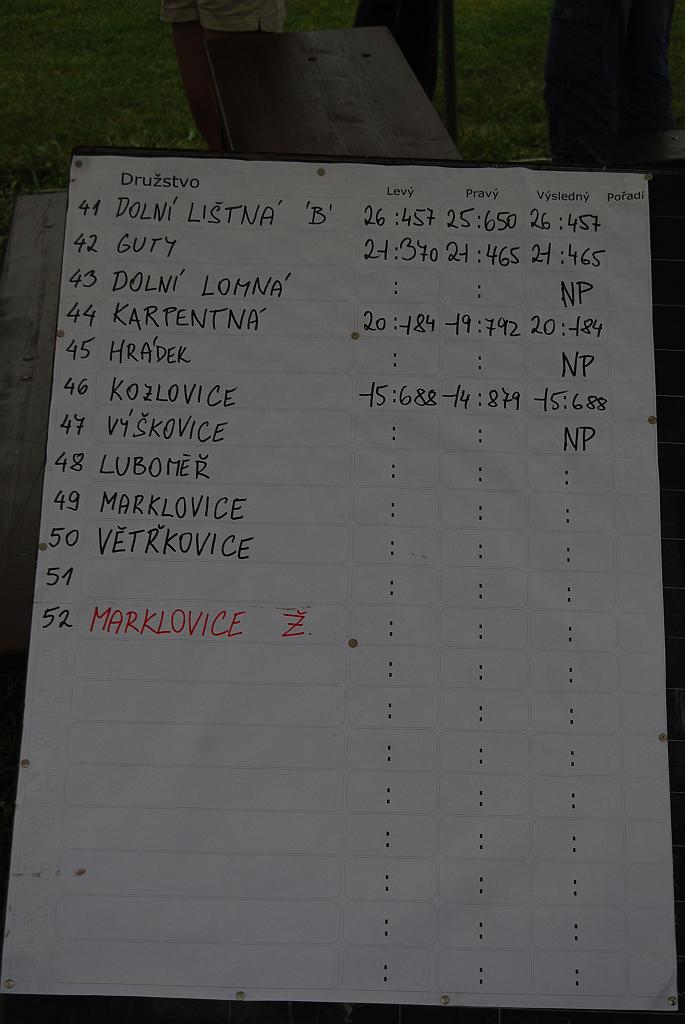 Družstvo Levý Pravý Výsledný Pořadí
41 DOLNÍ LIŠTNÁ 'B' 26:457 25:650 26:457
42 GUTY 21:370 21:465 21:465
43 DOLNÍ LOMNÁ : : NP
44 KARPENTNÁ 20:184 19:792 20:184
45 HRÁDEK : : NP
46 KOZLOVICE 15:688 14:879 15:688
47 VÝŠKOVICE : : NP
48 LUBOMĚŘ : : :
49 MARKLOVICE : : :
50 VĚTŘKOVICE : : :
51 : : :
52 MARKLOVICE Ž. : : :
53 : : :
54 : : :
55 : : :
56 : : :
57 : : :
58 : : :
59 : : :
60 : : :